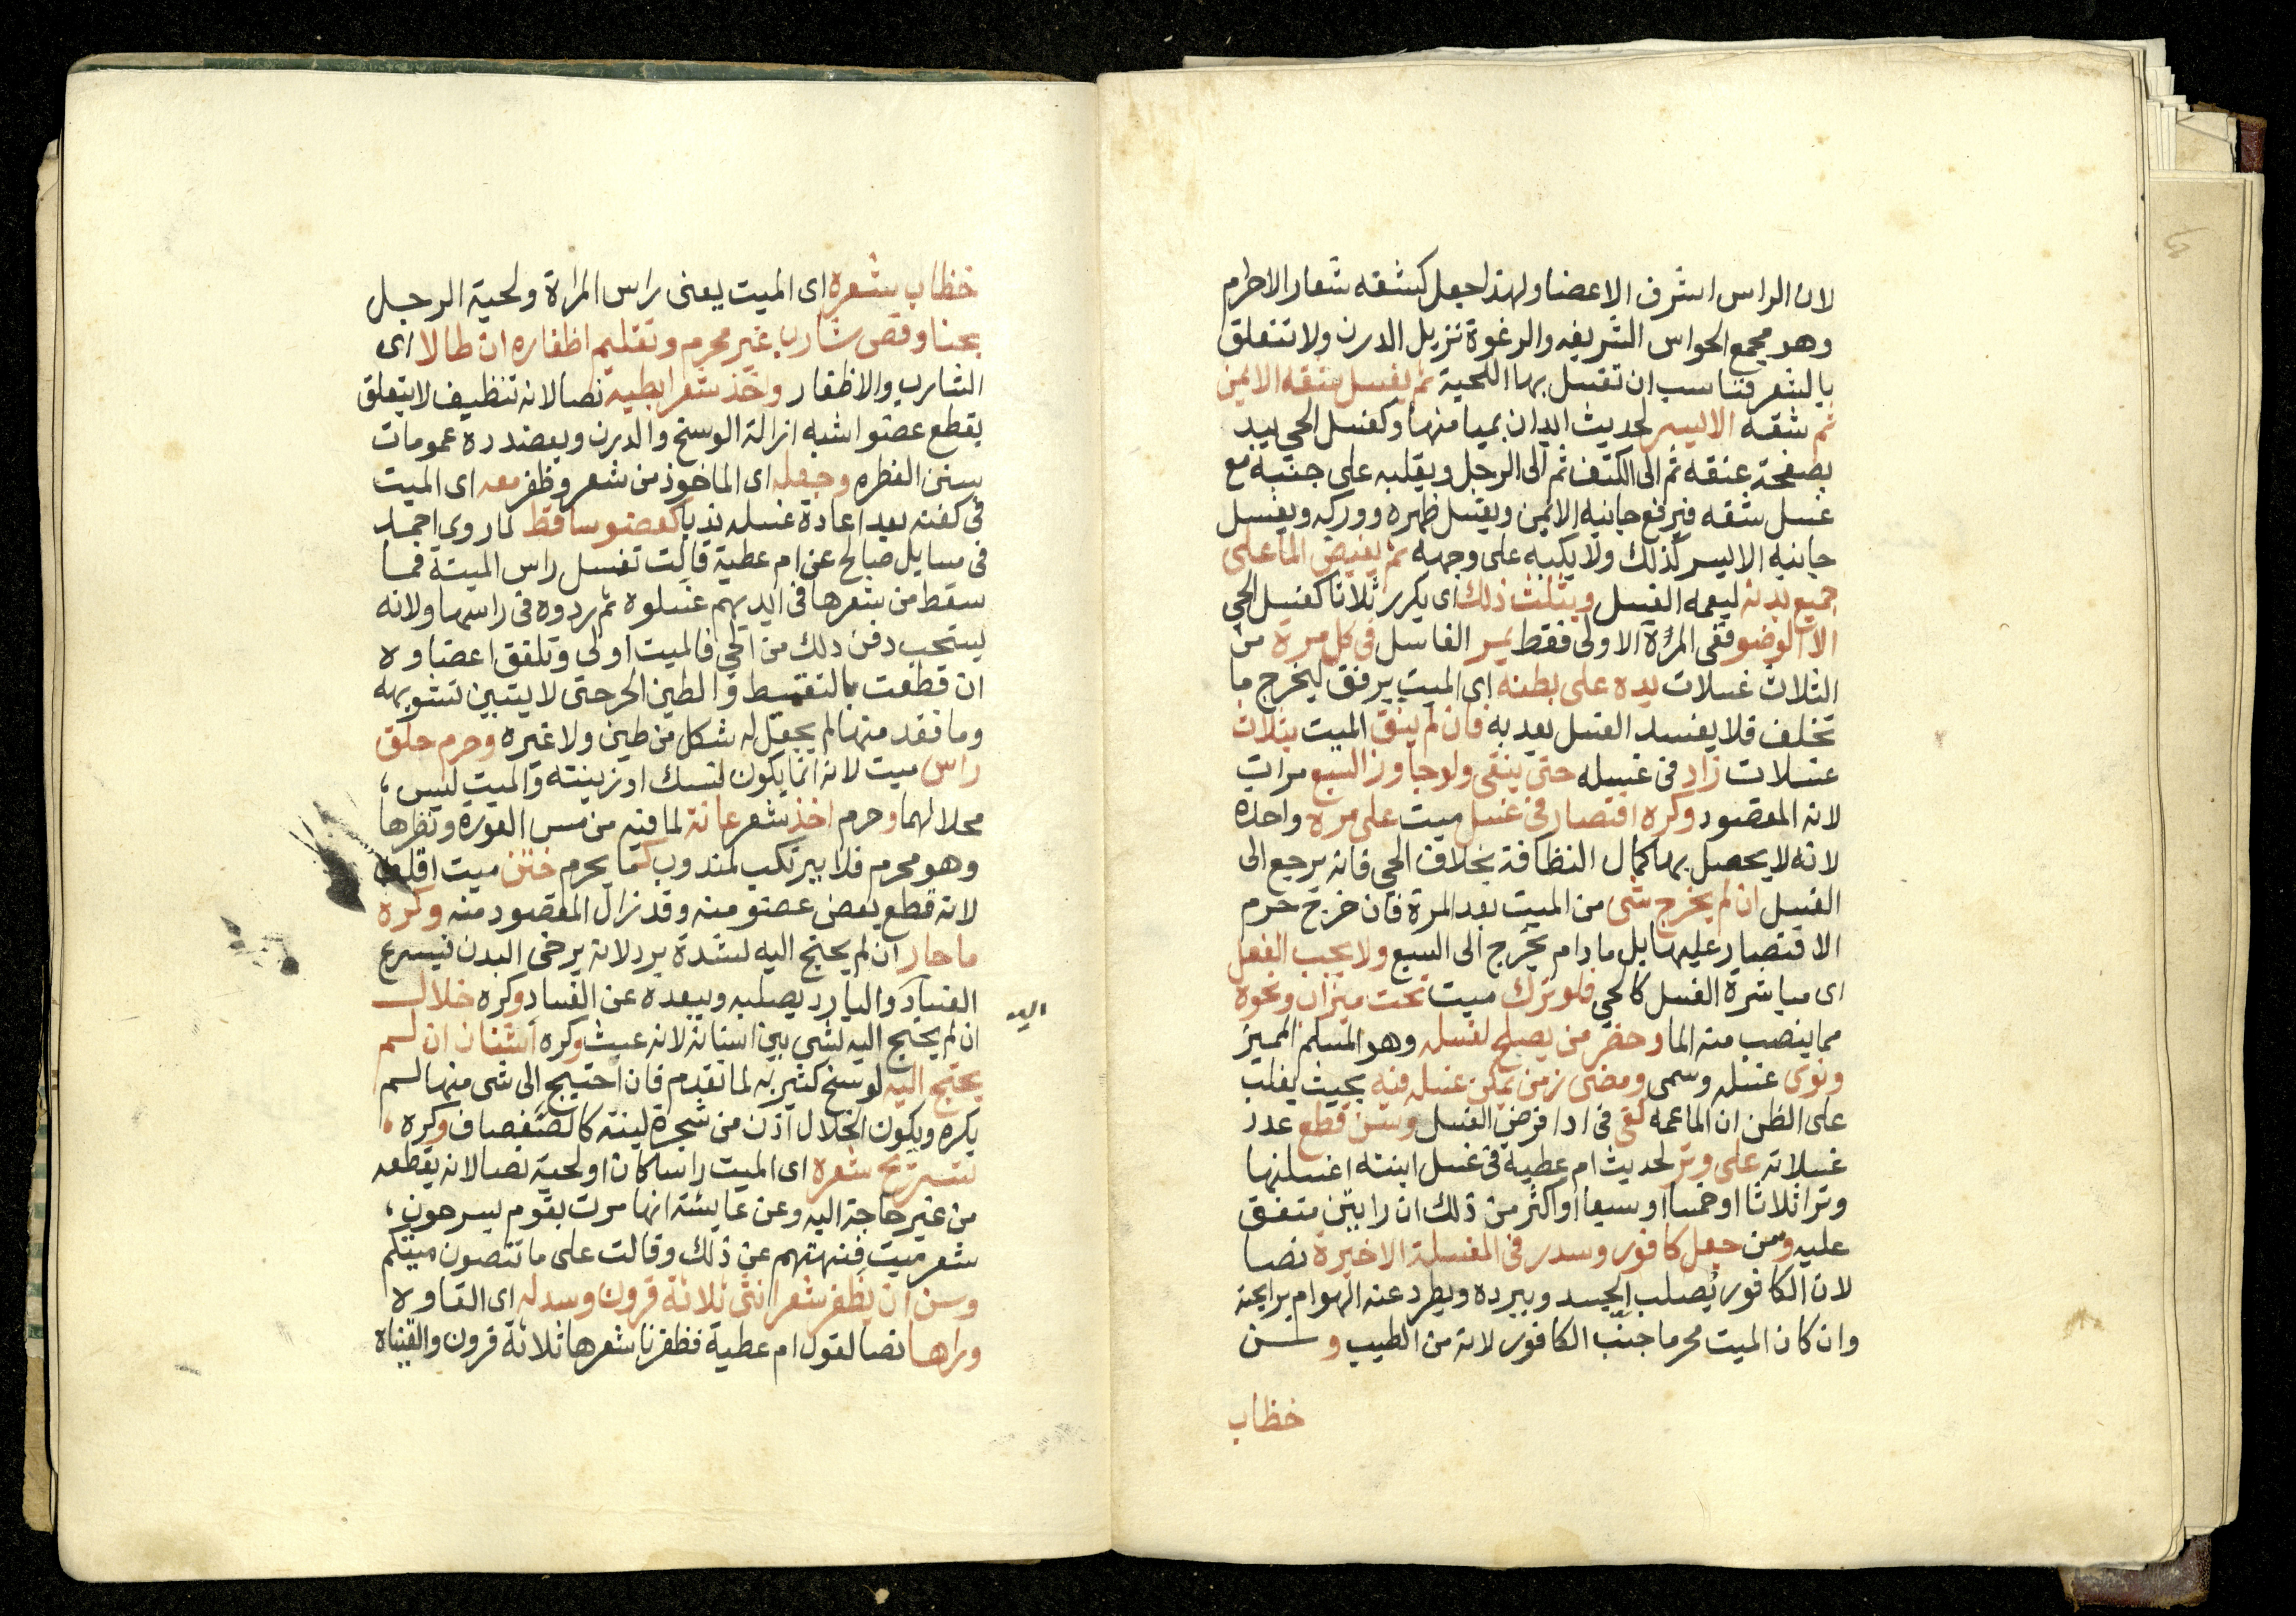 لان الراس اشرف الاعضا ولهذا جعل كشفه شعار الاحرام
وهو مجمع الحواس الشريفه والرغوة تزيل الدرن ولا تتعلق
بالشعر فناسب ان تغسل بها اللحية ثم يغسل شقه الايمن
ثم شقه الايسر لحديث ابدان بميامنها وكغسل الحي يبدا
بصفحة عنقه ثم الى الكتف ثم الى الرجل ويقلبه على جنبه مع
غسل شقه فيرفع جانبه الايمن ويغسل ظهره ووركه ويغسل
جانبه الايسر كذلك ولا يكبه على وجهه ثم يفيض الما على
جميع بدنه ليعمه الغسل ويثلث ذلك اى يكرر ثلاثا كغسل الحي
الا الوضو ففى المرة الاولى فقط يمر الغاسل فى كل مرة من
الثلاث غسلات يده على بطنه اى الميت برفق ليخرج ما
تخلف فلا يفسد الغسل بعد به فان لم ينق الميت بثلاث
غسلات زاد فى غسله حتى ينقى ولو جاوز السبع مرات
لانه المقصود وكره اقتصار فى غسل ميت على مرة واحده
لانه لا يحصل بها كمال النظافة بخلاف الحي فانه يرجع الى
الغسل ان لم يخرج شى من الميت بعد المرة فان خرج حرم
الاقتصار عليها بل ما دام يخرج الى السبع ولا يجب الفعل
اى مباشرة الغسل كالحي فلو ترك ميت تحت ميزاب ونحوه
مما ينصب منه الما وحضر من يصلح لغسله وهو المسلم المميز
ونوى غسله وسمى ومضى زمن يمكن غسله فيه بحيث يغلب
على الظن ان الما عمه كفى فى ادا فرض الغسل وسن قطع عدد
غسلاته على وتر لحديث ام عطية فى غسل ابنته اغسلنها
وترا ثلاثا او خمسا او سبعا او اكثر من ذلك ان رايتن متفق
عليه وسن جعل كافور وسدر فى الغسلة الاخيرة نصا
لان الكافور يصلب الجسد ويبرده ويطرد عنه الهوام برايحته
وان كان الميت محرما جنب الكافور لانه من الطيب وسن
خظاب
خظاب شعره اى الميت يعنى راس المراة ولحية الرجل
بحنا وقص شارب غير محرم وتقليم اظفاره ان طالا اى
الشارب والاظفار واخذ شعر ابطيه نصا لانه تنظيف لا يتعلق
بقطع عضو اشبه ازالة الوسخ والدرن ويعضدده عمومات
سنن الفطره وجعله اى الماخوذ من شعر وظفر معه اى الميت
فى كفنه بعد اعادة غسله ندبا كعضو ساقط لما روى احمد
فى مسايل صالح عن ام عطية قالت تغسل راس الميتة فما
سقط من شعرها فى ايديهم غسلوه ثم ردوه فى راسها ولانه
يستحب دفن ذلك من الحي فالميت اولى وتلفق اعضاوه
ان قطعت بالتقميط والطين الحر حتى لا يتبين تشويهه
وما فقد منها لم يجعل له شكل من طين ولا غيره وحرم حلق
راس ميت لانه انما يكون لنسك او زينته والميت ليس
محلا لهما وحرم اخذ شعر عانة لما فيه من مس العورة ونظرها
وهو محرم فلا يرتكب لمندوب كما يحرم ختن ميت اقلف
لانه قطع بعض عضو منه وقد زال المقصود منه وكره
ما حار ان لم يحتج اليه لشدة برد لانه يرخى البدن فيسرع
الفساد والبارد يصلبه ويبعده عن الفساد وكره خلال
اليه
ان لم يحتج اليه لشى بين اسنانه لانه عبث وكره اشنان ان لم
يحتج اليه لوسخ كثير به لما تقدم فان احتيج الى شى منها لم
يكره ويكون الخلال اذن من شجرة لينة كالصفصاف وكره
تسريح شعره اى الميت راسا كان او لحية نصا لانه يقطعه
من غير حاجة اليه وعن عايشة انها مرت بقوم يسرحون
شعر ميت فنهتهم عن ذلك وقالت على ما تنصون ميتكم
وسن ان يظفر شعر انثى ثلاثة قرون وسدله اى القاوه
وراها نصا لقول ام عطية فظفرنا شعرها ثلاثة قرون والقيناه